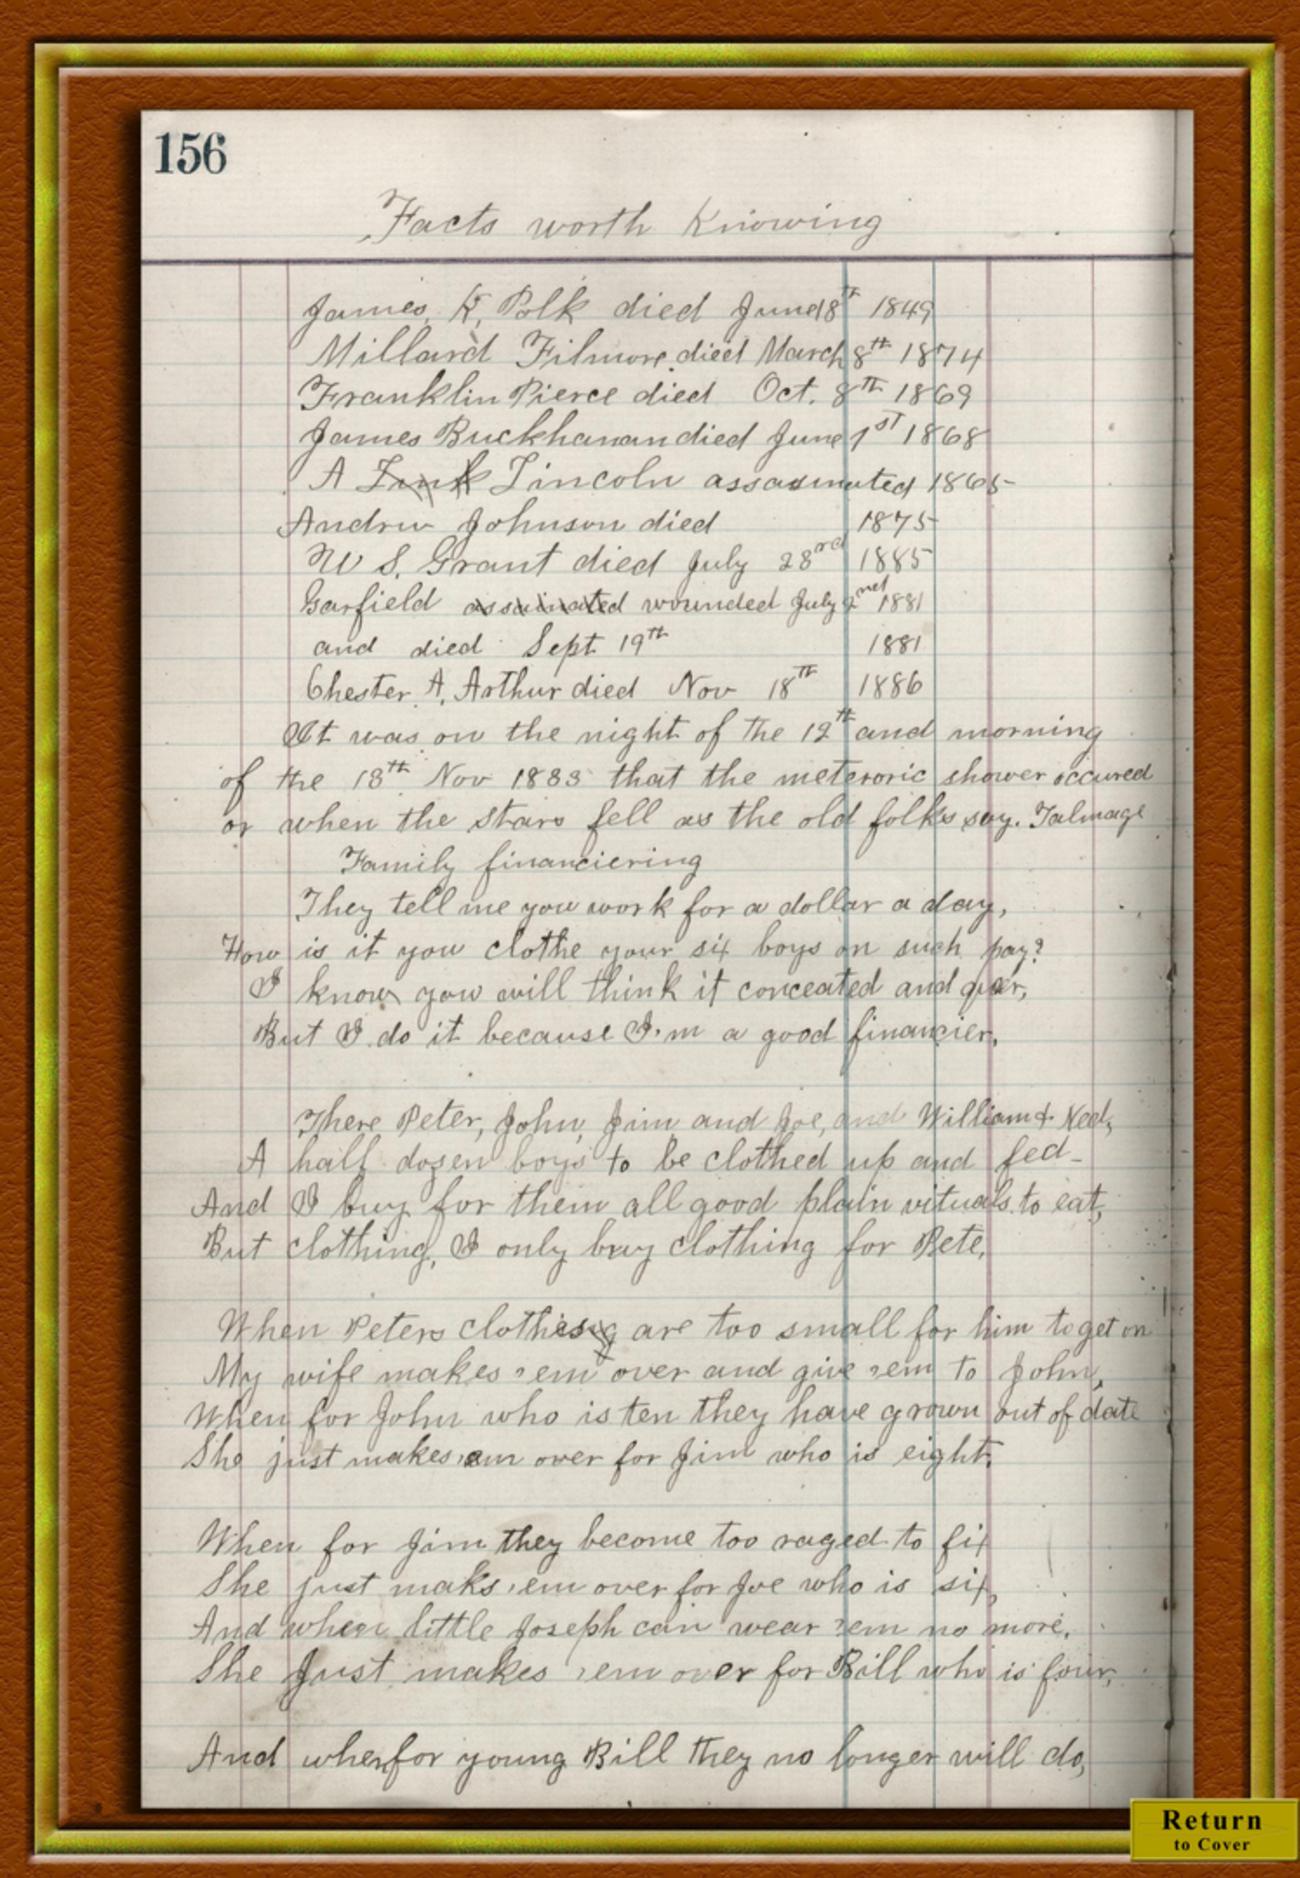 156
Facts worth Knowing
James, K, Polk died June 18th 1849
Millard Filmore died March 8th 1874
Franklin Pierce died Oct. 8th 1869
James Buckhanan died June 1st 1868
A Lincoln assasinated 1865
Andrew Johnson died 1875
U S. Grant died July 23rd 1885
Garfield assainated wounded July 2nd 1881
and died Sept 19th 1881
Chester A, Arthur died Nov 18th 1886
It was on the night of the 12th and morning
of the 13th Nov 1833 that the meteroric shower occured
or when the stars fell as the old folks say. Talmage
Family financiering
They tell me you work for a dollar a day,
How is it you clothe your six boys on such pay?
I know you will think it conceated and quer,
But I do it because I'm a good financier.
There Peter, John, Jim and Joe, and William & Ned,
A half dozen boys to be clothed up and fed-
And I buy for them all good plain vituals to eat,
But clothing, I only buy clothing for Pete,
When Peters clothes are too small for him to get on
My wife makes 'em over and give 'em to John,
When for John who is ten they have grown out of date
She just makes 'em over for Jim who is eight.
When for Jim they become too raged to fix
She just maks 'em over for Joe who is six,
And when little Joseph can wear 'em no more,
She Just makes 'em over for Bill who is four,
And when for young Bill they no longer will do,
Return
to Cover